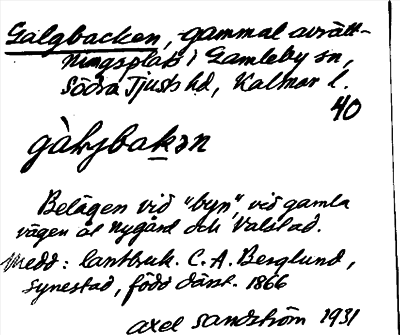 Galgbacken, gammal avrätt-
ningsplats i Gamleby sn,
Södra Tjusts hd, Kalmar l.
40
gàl̜ybakən
Belägen vid "byn", vid gamla
vägen åt Nygård och Valstad.
Medd: lantbruk. C. A. Berglund,
Synestad, född därst. 1866
Axel Sandström 1931